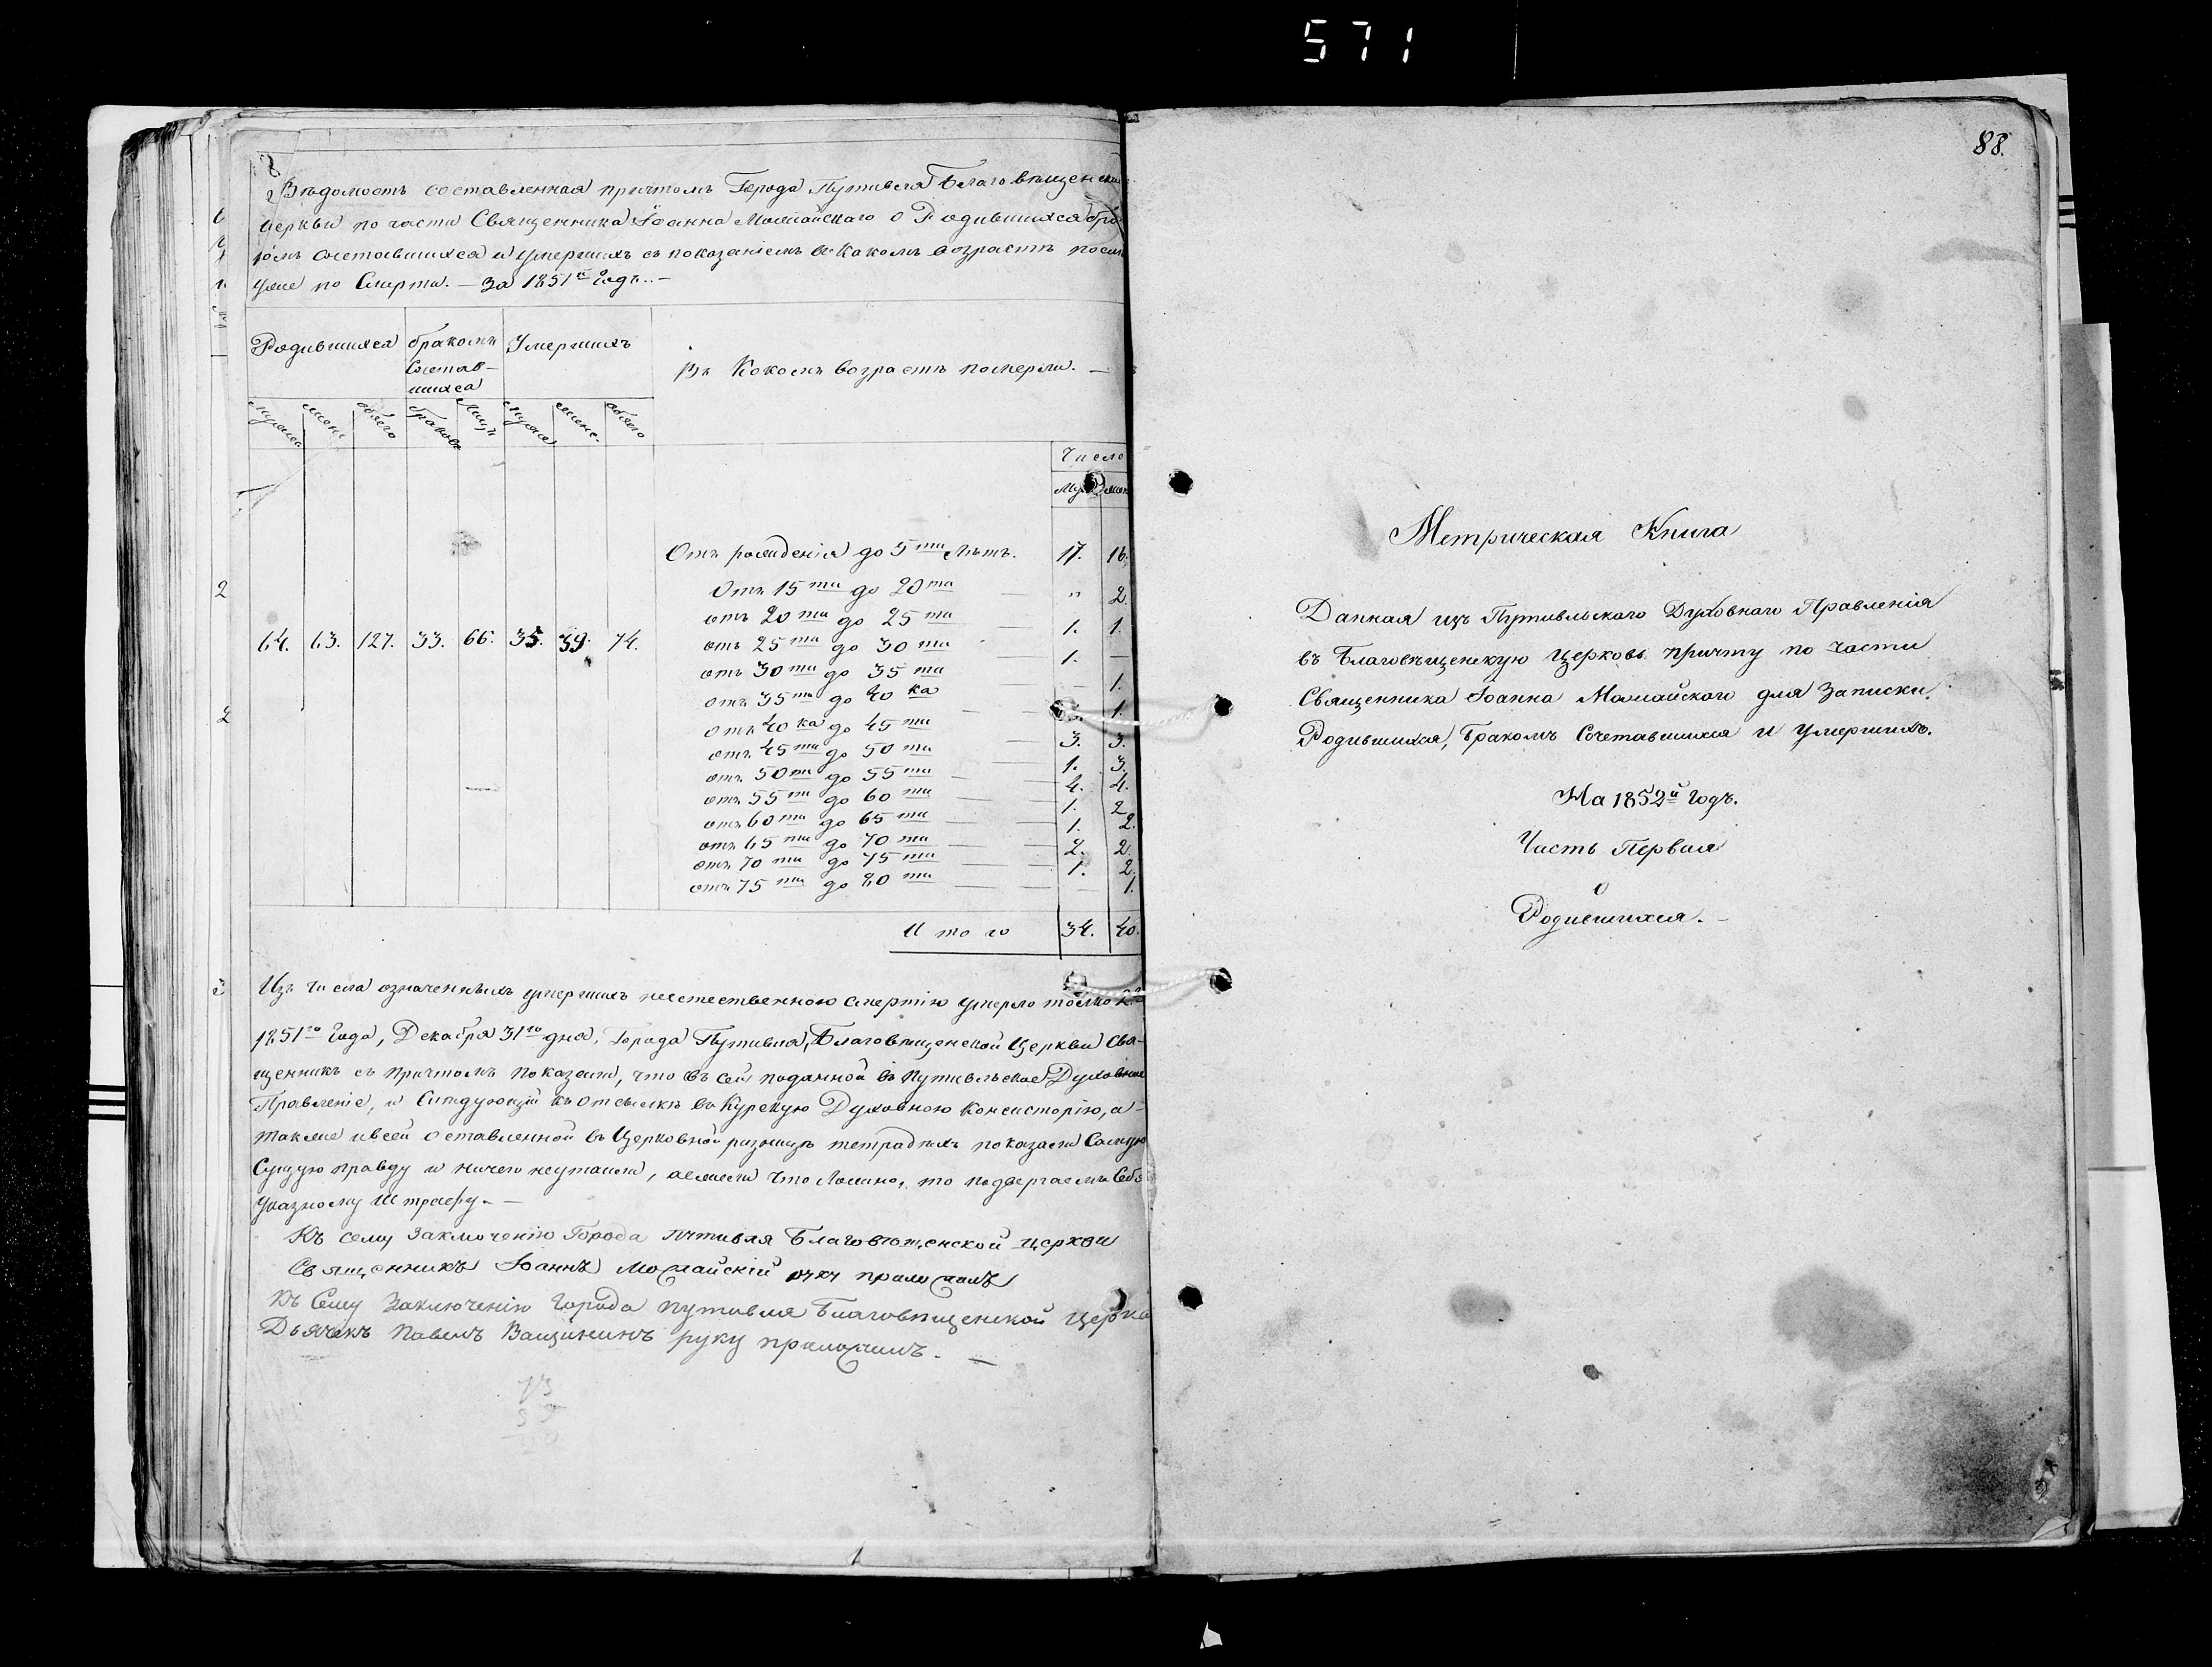 571
88.
Вѣдомость составленная причтомъ Города Путивля Благовѣщенской
церкви по части Священника Іоанна Можайскаго о Родившихся бра-
комъ сочетавшихся и умершихъ съ показаніемъ въ какомъ возрастѣ
по Смерти. — За 1851й Годъ. —
Родившихся
бракомъ
Сочетав-
шихся
Умершихъ
Въ Какомъ возрастѣ померли. —
мужеска
женс
обоего
браковъ
Лицъ
мужес
женс.
обоего
Число
Муж
жен
Отъ рожденія до 5ти Лѣтъ. 17. 16.
Отъ 15ти до 20ти — " 2.
отъ 20ти до 25ти — 1. 1.
отъ 25ти до 30ти — 1. —
отъ 30ти до 35ти — — 1.
отъ 35ти до 40ка — 1.
отъ 40ка до 45ти — 3. 3.
отъ 45ти до 50ти — 1. 3.
отъ 50ти до 55ти — 4. 4.
отъ 55ти до 60ти — 1. 2
отъ 60ти до 65ти — 1. 2.
отъ 65ти до 70ти — 2. 2.
отъ 70ти до 75ти — 1. 2.
отъ 75ти до 80ти — — 1.
64. 63. 127. 33. 66. 35. 39. 74.
Итого 34. 40.
Изъ числа означенныхъ умершихъ неестественною смертію умерло только
1851го Года, Декабря 31го дня, Города Путивля, Благовѣщенской Церкви Свя-
щенникъ съ причтомъ показали, что въ сей поданной въ Путивльское Духовное
Правленіе, и Слѣдующей къ отсылкѣ въ Курскую Духовною Консисторію, а-
также и въ сей оставленной въ Церковной ризницѣ тетрадяхъ показали Самую
Сущую правду и ничего неутаили, аежели что Ложно, то подвергаемъ Себя
указному Штрафу. —
Къ сему Заключенію Города Путивля Благовѣщенской церкви
Священникъ Іоаннъ Можайскій руку приложилъ
Къ Сему Заключенію Города Путивля Благовѣщенской Церкви
Дьячекъ Павелъ руку приложилъ. —
Метрическая Книга
Данная изъ Путивльскаго Духовнаго Правленія
въ Благовѣщенскую Церковь причту по части
Священника Іоанна Можайскаго для Записки
Родившихся, Бракомъ Сочетавшихся и Умершихъ.
На 1852й Годъ.
Часть Первая
О
Родившихся. —